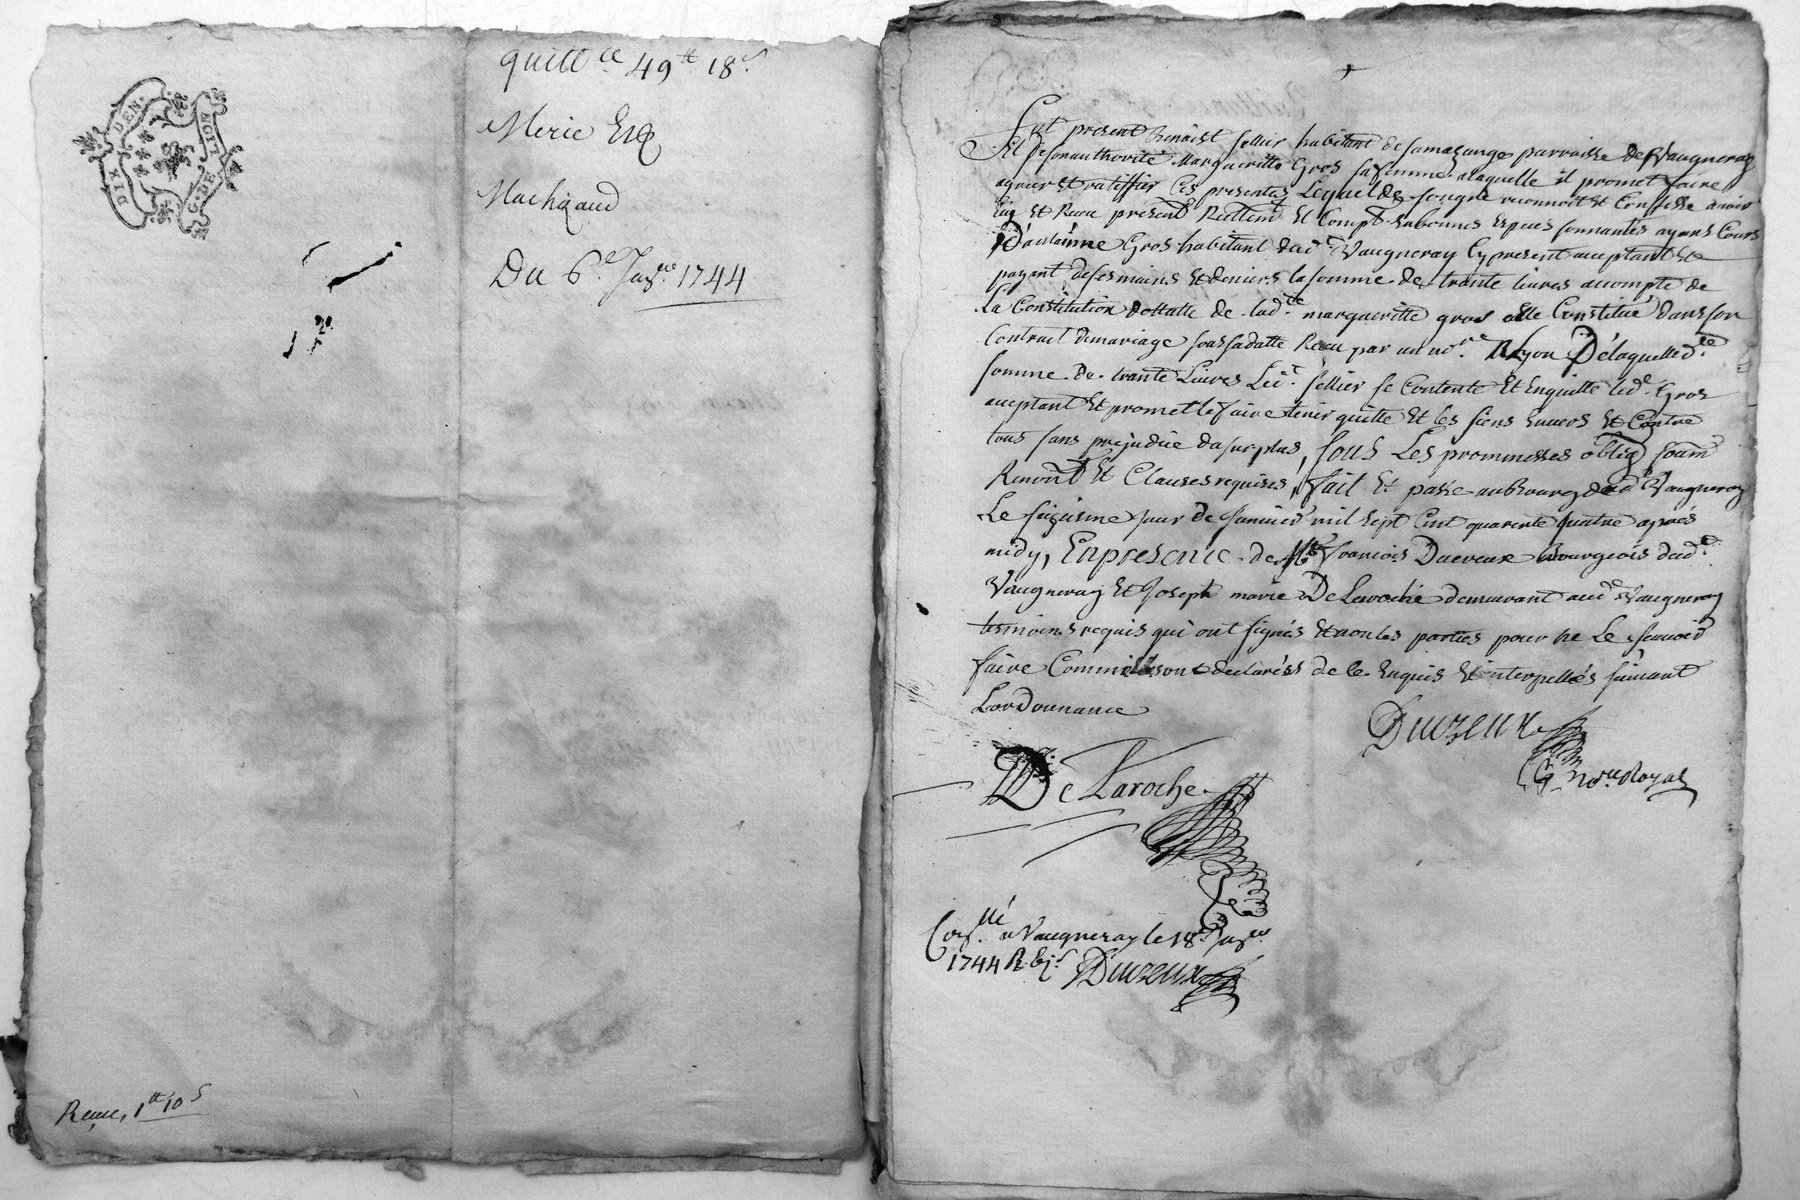 DIX DEN.
G. DE
quittce 49tt 18s.
Merie
Machizaud
Du 6e. Janre. 1744
Reçeu, 1tt 10s
Fut present Benoist Sellier habitant de samazange parroisse de Vaugneray
Et de son authorité Margueritte Gros sa femme a laquelle il promet faire
agréer Et ratiffier Ces presentes Lequel de son gré reconnoit Et Confesse avoir
Eu Et Receu presentt Reellemt Et Compt. en bonnes Especes sonnantes ayans Cours
D'estienne Gros habitant dud. Vaugneray Cy present acceptant Et
payant de ses mains Et deniers la somme de trante livres acompte de
La Constitution dottalle de ladce. margueritte gros elle Constitué dans son
Contract de mariage sous sa datte Receu par un nore. A Lyon De laquelle dte
somme de trante Livres Ledt. sellier se Contente Et Enquitte led. Gros
acceptant Et promet le faire tenir quitte Et les siens Envers Et Contre
tous sans prejudice du surplus, sous Les prommesses oblig soum
Renont Et Clauses requises, fait Et passé au Bourg dud Vaugneray
Le sizieme jour de janvier mil sept Cent quarente quatre aprés
midy, En presence de Mr francois Duvreux Bourgeois dud.
Vaugneray Et Joseph marie De Laroche demeurant aud Vaugneray
tesmoins requis qui ont signés Et non les parties pour ne Le sçavoir
faire Comme ils ont declarés de ce Enquis Et interpellés suivant
Lordonnance
De Laroche
Duvzeux
nore. Royal
à Vaugneray le 18e Janre
1744 R. 6s. Duvzeux